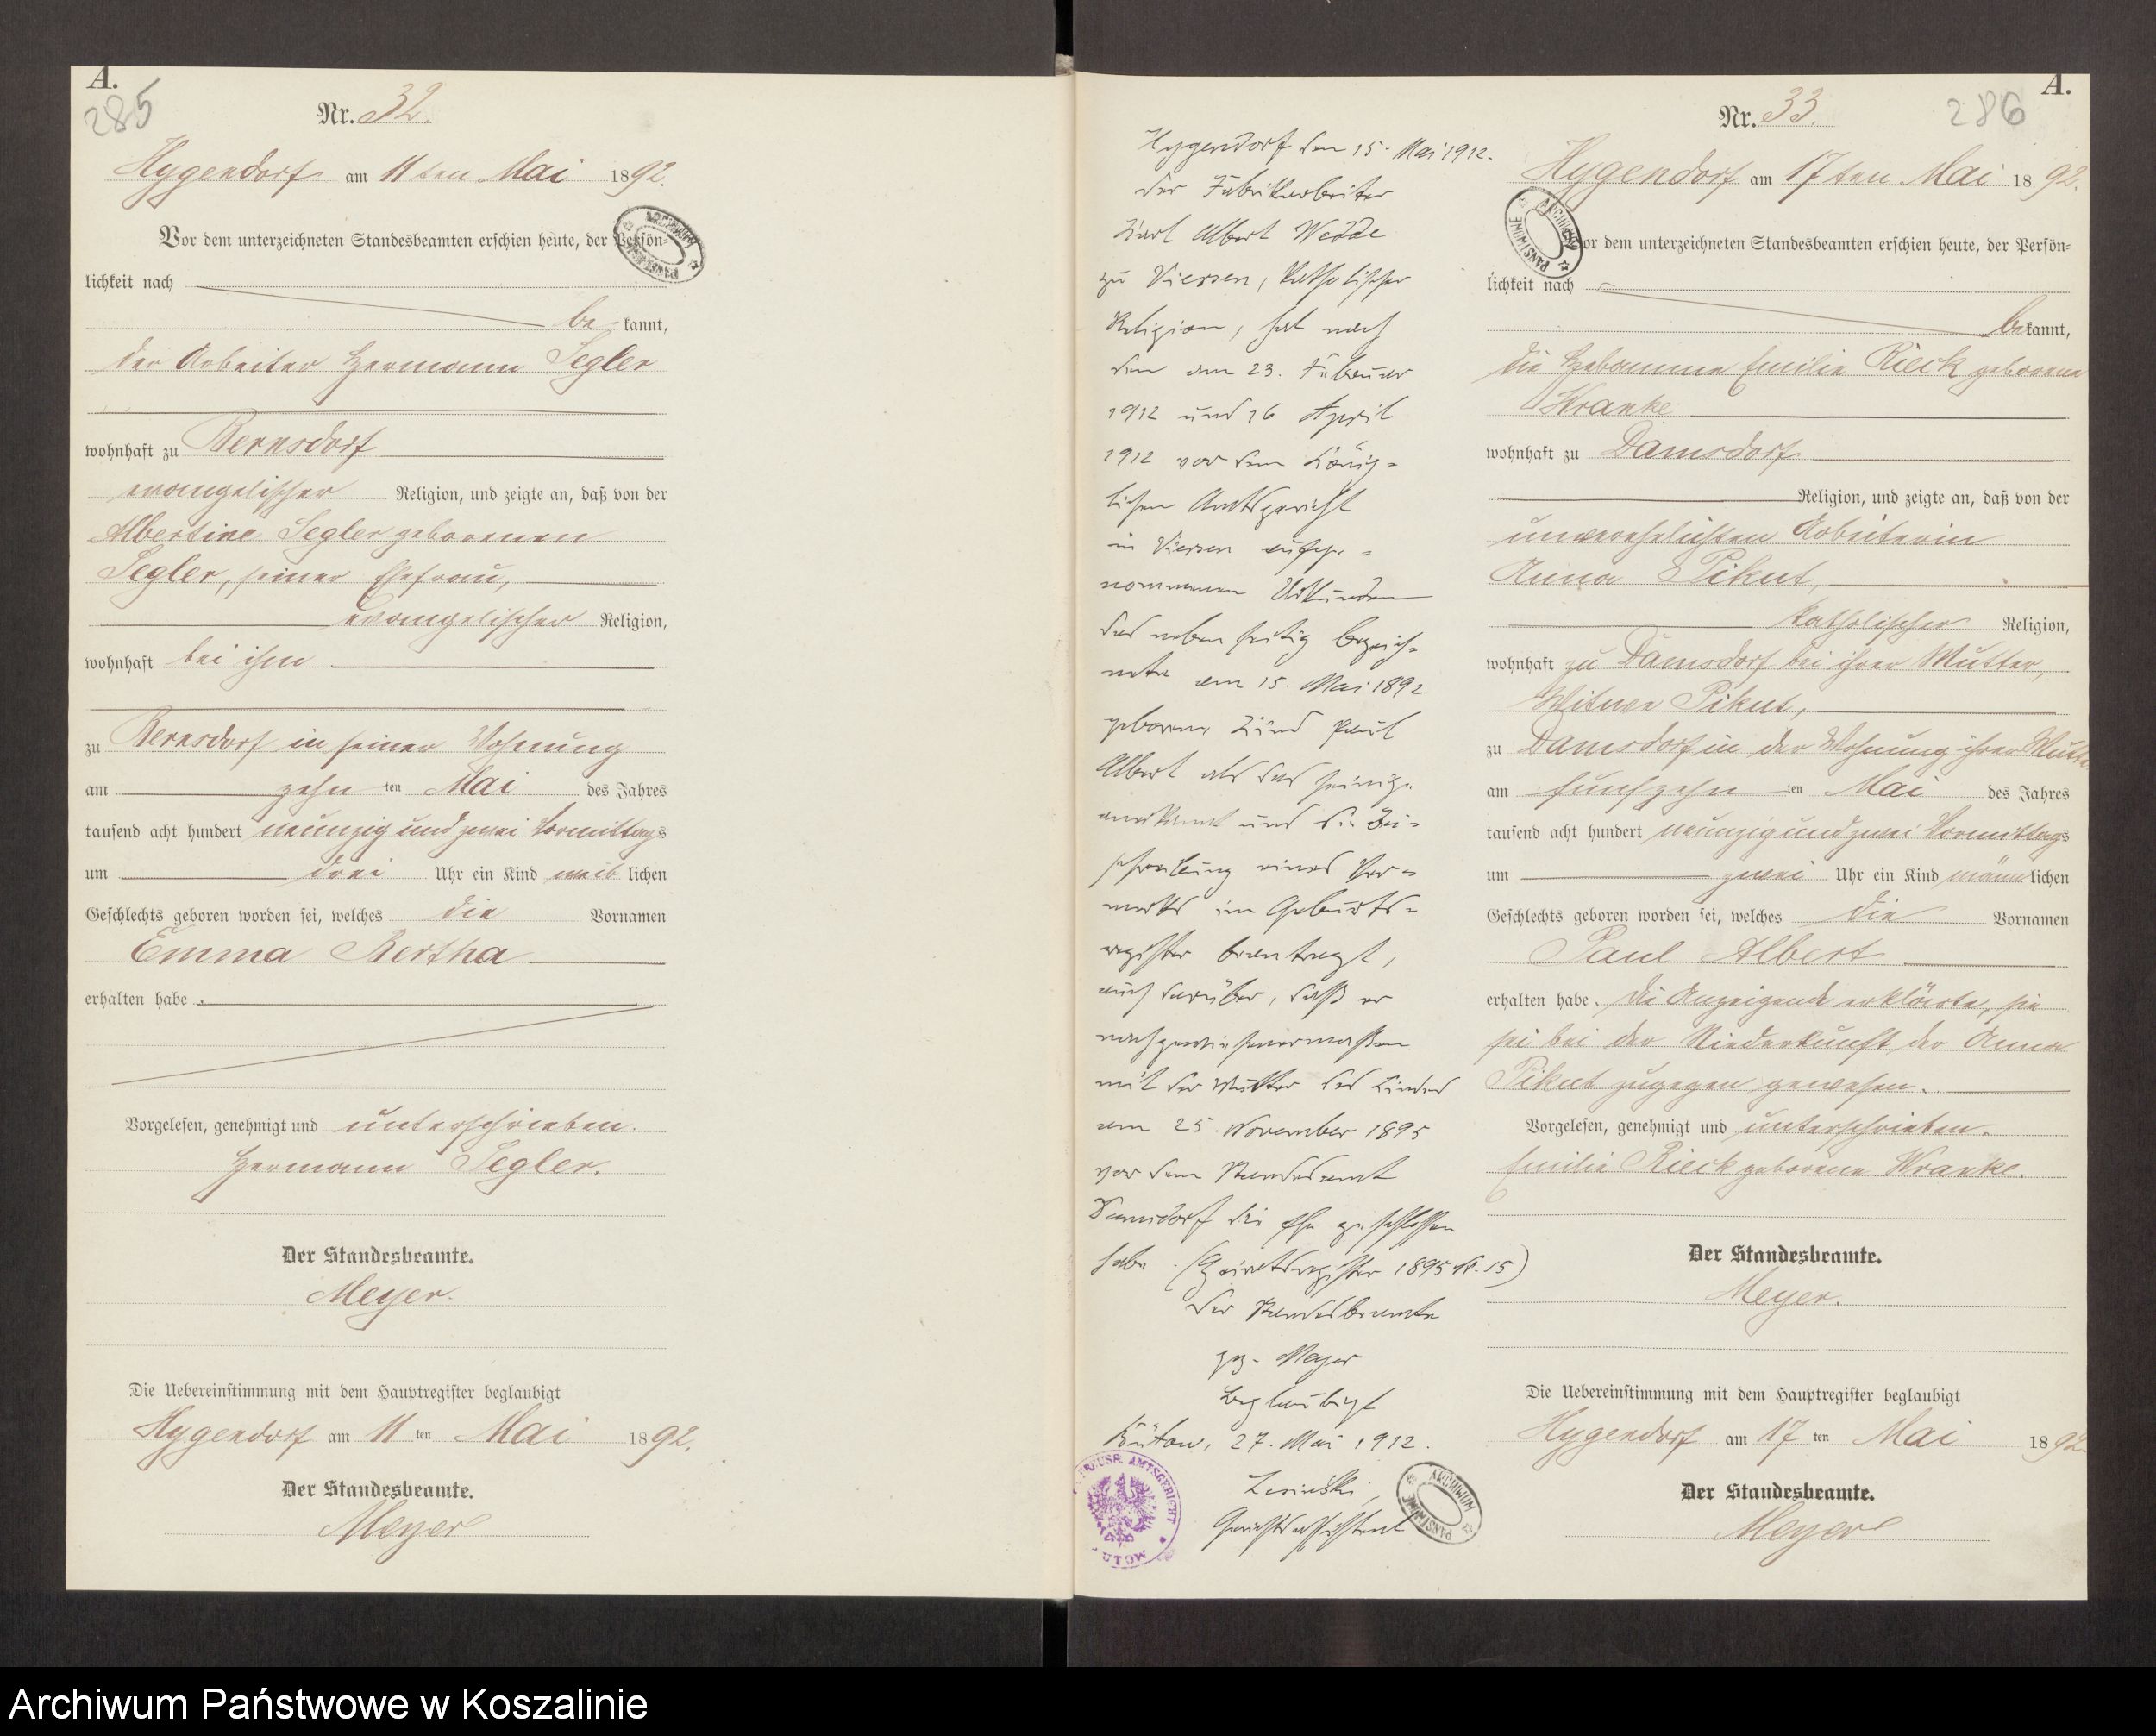 A.
285
Nr. 32.
Hygendorf am 11ten Mai 1892.
Vor dem unterzeichneten Standesbeamten erschien heute, der Persön-
lichkeit nach
be kannt,
der Arbeiter Hermann Segler
wohnhaft zu Bernsdorf
evangelischer Religion, und zeigte an, daß von der
Albertine Segler geborenen
Segler, seiner Ehefrau,
evangelischer Religion,
wohnhaft bei ihm
zu Bernsdorf in seiner Wohnung
am zehn ten Mai des Jahres
tausend acht hundert neunzig und zwei Vormittags
um drei Uhr ein Kind weib lichen
Geschlechts geboren worden sei, welches die Vornamen
Emma Bertha
erhalten habe.
Vorgelesen, genehmigt und unterschrieben.
Hermann Segler.
Der Standesbeamte.
Meyer.
Die Uebereinstimmung mit dem Hauptregister beglaubigt
Hygendorf am 11 ten Mai 1892.
Der Standesbeamte.
Meyer
ARCHIWUM PAŃSTWOWE
Hygendorf den 15. Mai 1912.
Der Fabrikarbeiter
Karl Albert Wedde
zu Viersen, katholischer
Religion, hat nach
den am 23. Februar
1912 und 16 April
1912 vor dem König-
lichen Amtsgericht
in Viersen aufge-
nommenen Urkunden
das nebenseitig bezeich-
nete am 15. Mai 1892
geborene Kind Paul
Albert als das seinige
anerkannt und die Bei-
schreibung eines Ver-
merks im Geburts-
register beantragt,
auch darüber, daß er
nachgewiesenermaßen
mit der Mutter des Kindes
am 25. November 1895
vor dem Standesamt
Damsdorf die Ehe geschlossen
habe. (Heiratsregister 1895 N. 15)
Der Standesbeamte
gez. Meyer
Beglaubigt
Bütow, 27. Mai 1912.
Gerichtsassistent
PREUSS. AMTSGERICHT
BÜTOW
ARCHIWUM PAŃSTWOWE
A.
286
Nr. 33.
Hygendorf am 17ten Mai 1892.
ARCHIWUM PAŃSTWOWE
Vor dem unterzeichneten Standesbeamten erschien heute, der Persön-
lichkeit nach
be kannt,
die Hebamme Emilie Rieck geborene
Kranke
wohnhaft zu Damsdorf
Religion, und zeigte an, daß von der
unverehelichten Arbeiterin
Anna Pikut,
katholischer Religion,
wohnhaft zu Damsdorf bei ihrer Mutter,
Witwe Pikut,
zu Damsdorf in der Wohnung ihrer Mutter
am fünfzehn ten Mai des Jahres
tausend acht hundert neunzig und zwei Vormittags
um zwei Uhr ein Kind männ lichen
Geschlechts geboren worden sei, welches die Vornamen
Paul Albert
erhalten habe. Die Anzeigende erklärte, sie
sei bei der Niederkunft der Anna
Pikut zugegen gewesen.
Vorgelesen, genehmigt und unterschrieben.
Emilie Rieck geborene Kranke.
Der Standesbeamte.
Meyer.
Die Uebereinstimmung mit dem Hauptregister beglaubigt
Hygendorf am 17 ten Mai 1892.
Der Standesbeamte.
Meyer
Archiwum Państwowe w Koszalinie